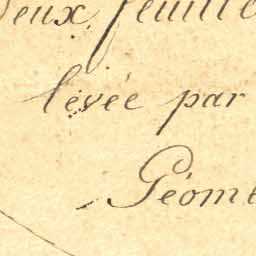 deux feuille
levée par
Géomè